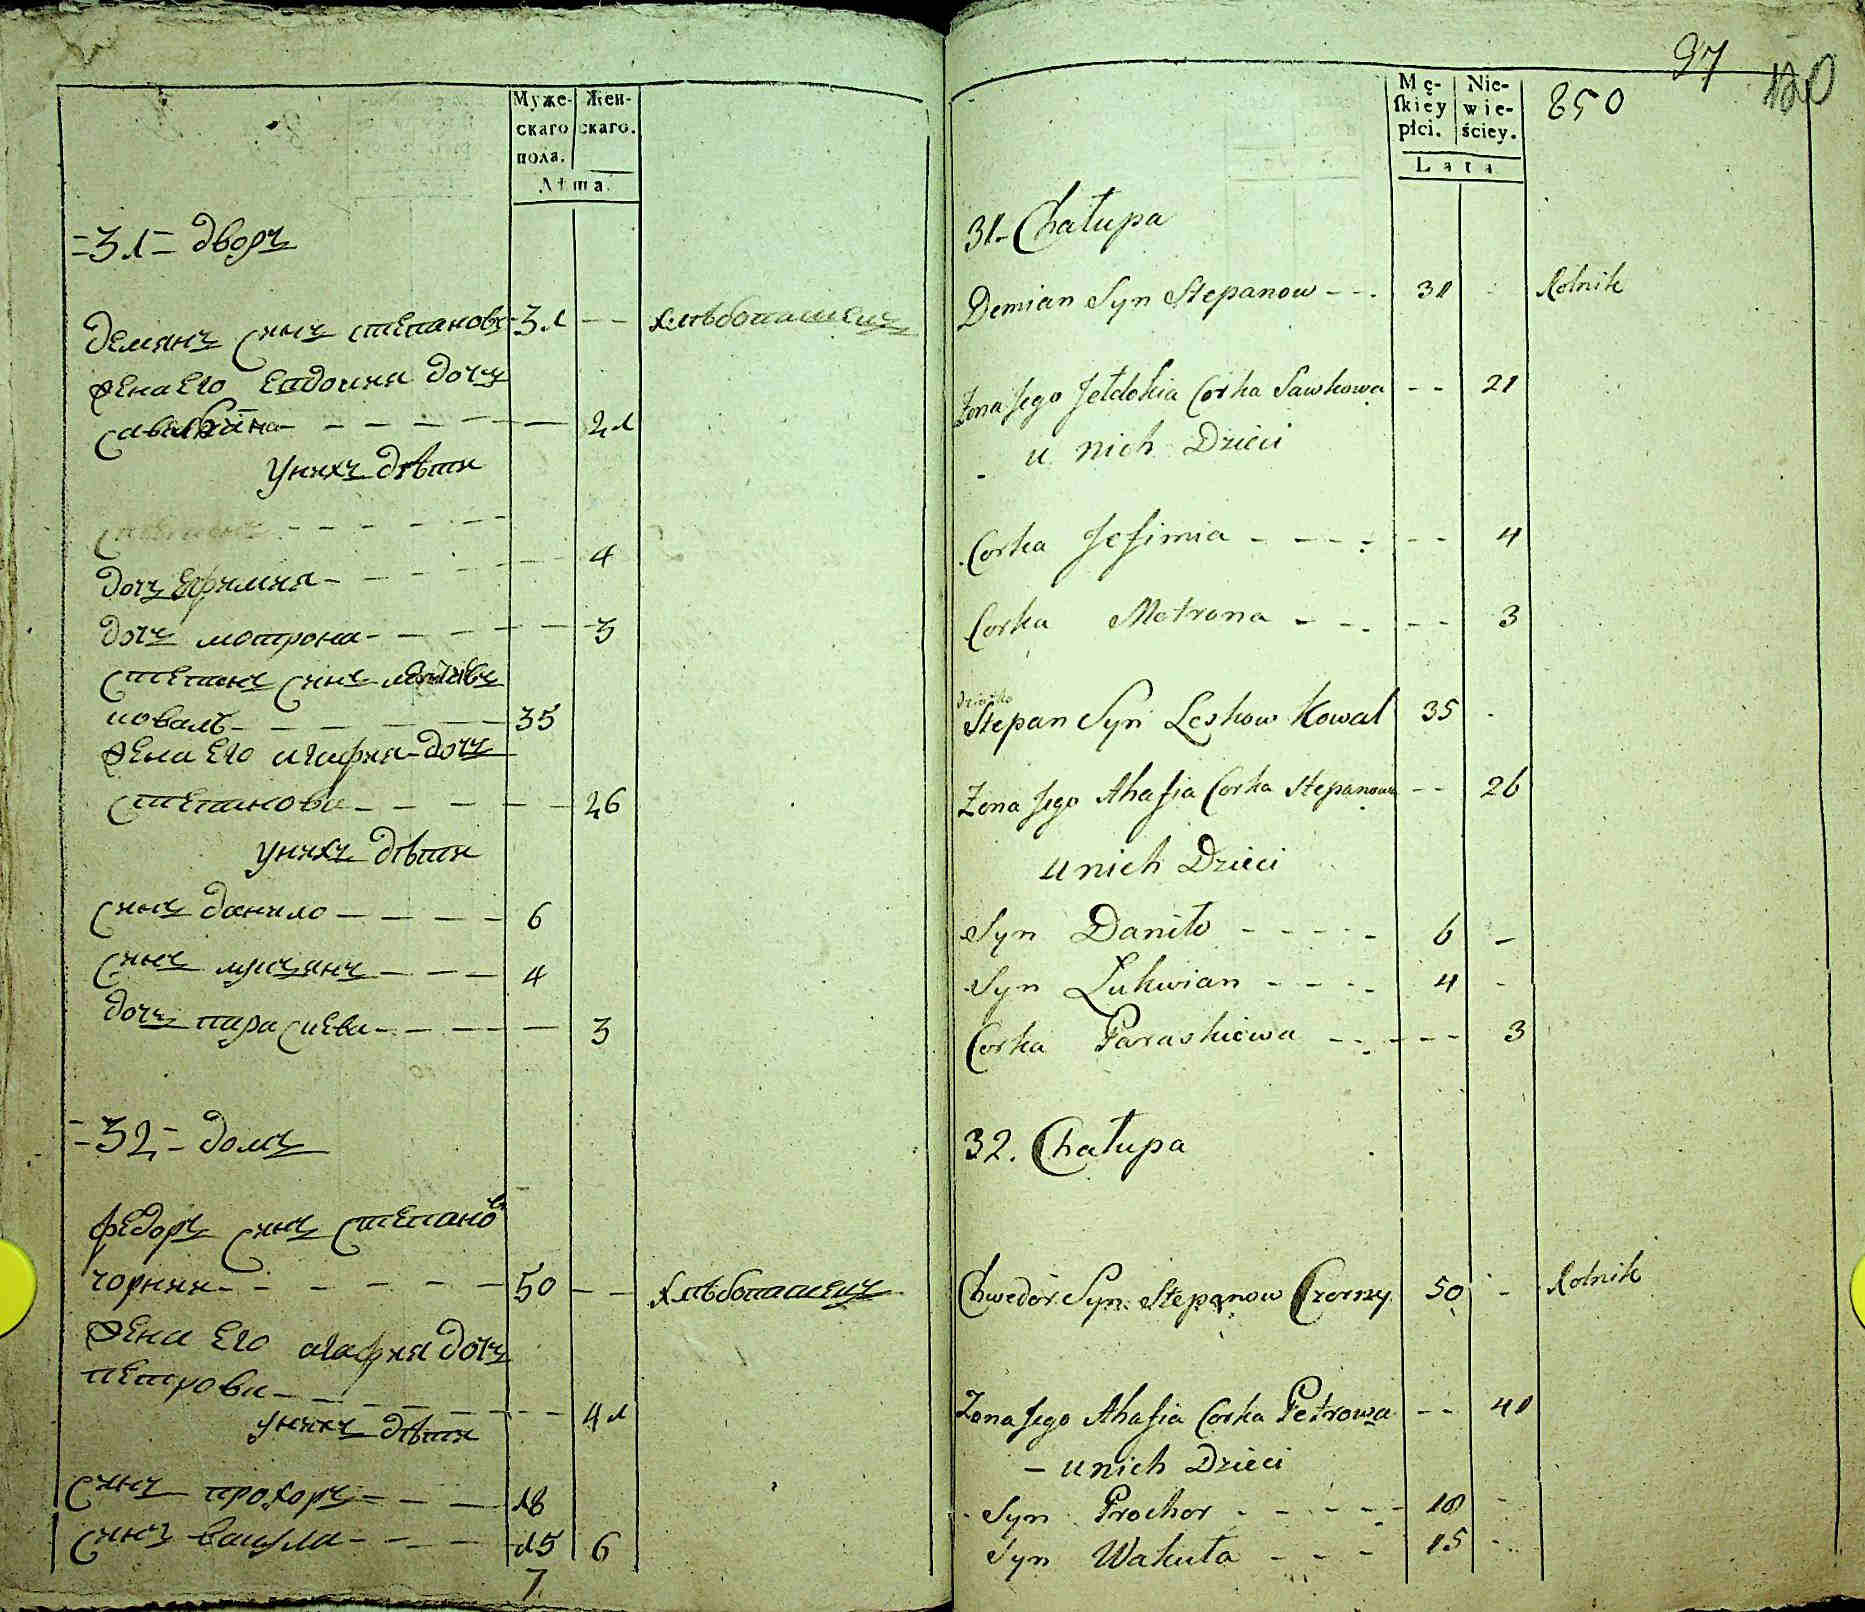 Муже- Жен-
скаго скаго.
пола.
Лѣта.
=31= дворъ
демянъ сынъ степановъ 31 — — хлѣбопашецъ
жена его евдокия дочъ
савкина — — — — — — 21
унихъ дѣти
— — — —
дочъ ефимия — — — — — 4
дочъ мотрона — — — — — 3
степанъ сынъ леськовъ
коваль — — — — — 35
жена его агафия дочъ
степанова — — — — — 26
унихъ дѣти
сынъ данило — — — — 6
сынъ лукиянъ — — — 4
дочъ параскева — — — — — 3
=32= домъ
федоръ сынъ степановъ
чорнии — — — — — 50 — — хлѣбопашецъ
жена его агафия дочъ
петрова — — — — — — 41
унихъ дѣти
сынъ прохоръ — — — 18
сынъ вакула — — — 15 6
7
97 120
Mę- Nie- 850
skiey wie-
płci. ściey.
Lata
31- Chałupa
Demian Syn Stepanow - - . 31 - Rolnik
Zona Jego Jełdokia Corka Sawkowa - - 21
u nich Dzieci
Corka Jefimia - - - - - - 4
Corka Motrona - - - - - 3
Stepan Syn Leskow Kowal 35 -
Zona Jego Ahafia Corka Stepanowa - - 26
u nich Dzieci
Syn Daniło - - - - - 6 -
Syn Łukwian - - - - 4 -
Corka Paraskiewa - - - - - 3
32. Chałupa
Chwedor Syn Stepanow Czorny 50 - Rolnik
Zona Jego Ahafia Corka Petrowa - - 41
- u nich Dzieci
Syn Prochor - - - - - 18 -
Syn Wakuła - - - 15 -